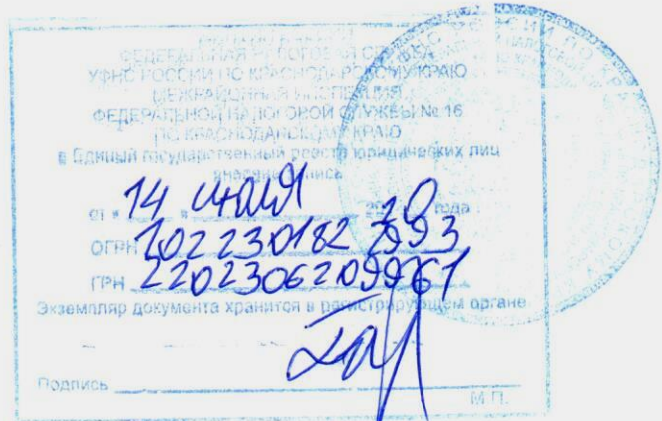 ФЕДЕРАЛЬНАЯ НАЛОГОВАЯ СЛУЖБА
УФНС РОССИИ ПО КРАСНОДАРСКОМУ КРАЮ
МЕЖРАЙОННАЯ ИНСПЕКЦИЯ
ФЕДЕРАЛЬНОЙ НАЛОГОВОЙ СЛУЖБЫ № 16
ПО КРАСНОДАРСКОМУ КРАЮ
в Единый государственный реестр юридических лиц
внесена запись
от « 14 » июля 20 года
ОГРН 102 230182 7993
ГРН 2202306209961
Экземпляр документа хранится в регистрирующем органе
Подпись
М.П.